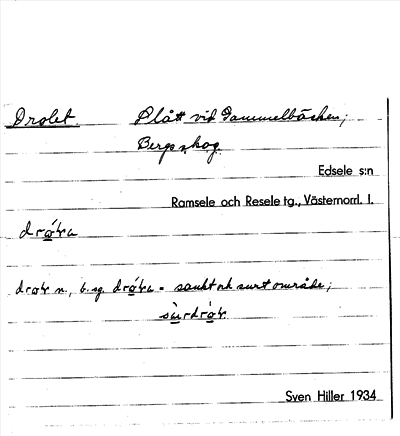 Drolet. Slått vid Gammelbäcken;
Bergs skog.
Edsele s:n
Ramsele och Resele tg., Västernorrl. l.
n., b. sg. = sankt och surt område;
Sven Hiller 1934